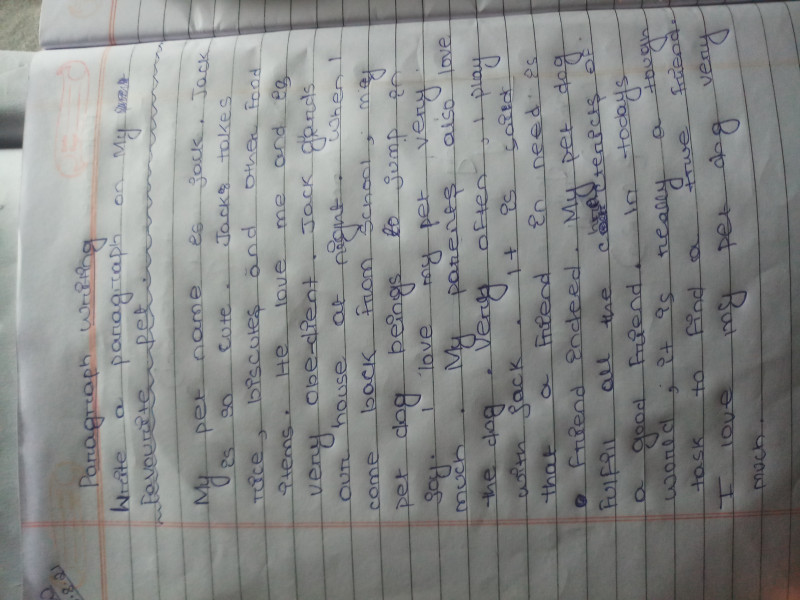 Paragraph writing
Write a paragraph on My
Favourite pet.
My pet name is Jack. Jack
is so cute. Jack takes
rice, biscuits and other food
items. He love me and is
very obe-dient. Jack gards
our house at night. when I
come back from school, my
pet dog beings to jump in
joy. I love my pet very
much. My parents also love
the dog. Very often, I play
with Jack. It is said
that a friend in need is
a friend indeed. My pet dog
fulfill all the
a good friend. In todays
world, it is really a tough
task to find a true friend.
I love my pet dog very
much.